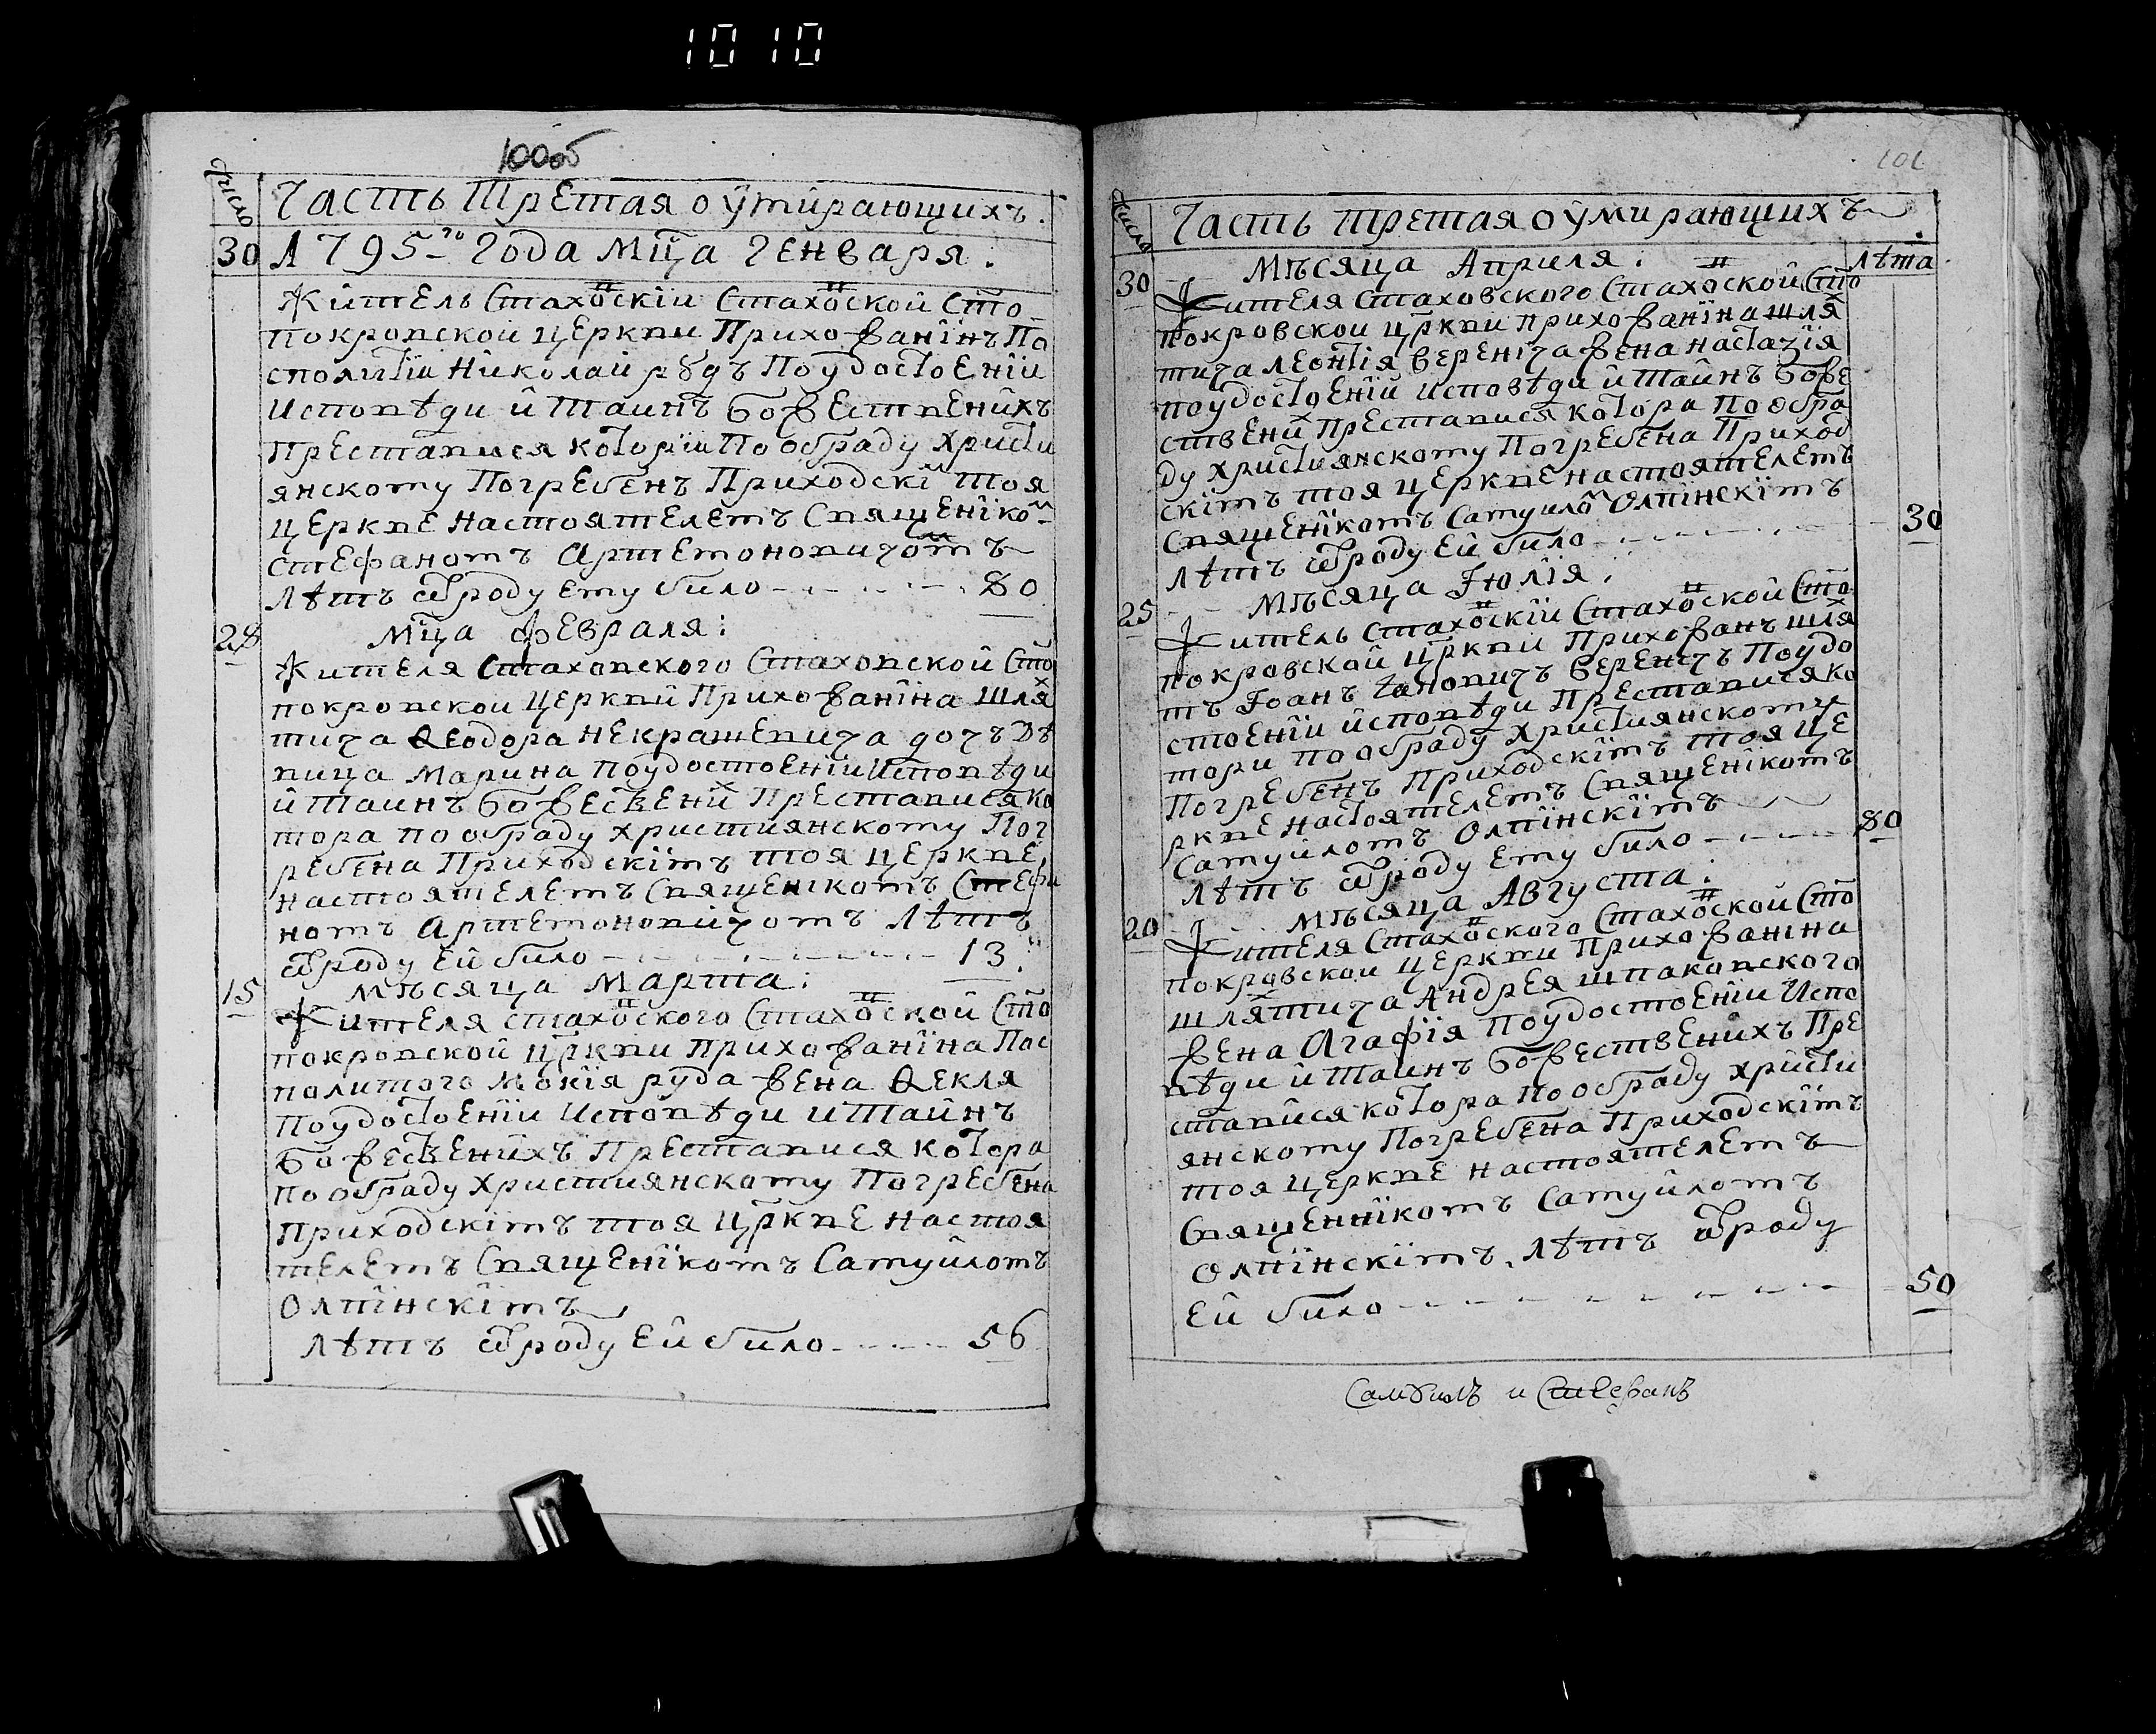 1010
100об
число
Часть Третая о ўмирающихъ.
30 1795го Года мца Генваря.
Житель Стаховскіи Стаховской Сто
покровской церкви Прихожанінъ По
сполитіи Николай рудъ Поудостоеніи
Исповѣди и Таинъ Божественихъ
Преставися которіи По обряду христи
янскому Погребенъ Приходскім тоя
церкве настоятелемъ Священіком
Стефаномъ Артемоновичомъ
Лѣтъ ѿроду ему било 80
28 Мца февраля:
Жителя Стаховского Стаховской Сто
покровской церкви Прихожаніна шлях
тича Ѳеодора некрашевича дочъ дѣ
вица Марина Поудостоеніи Исповѣди
и Таинъ Божествених Преставися ко
тора по обряду християнскому Пог
ребена Приходскімъ тоя церкве,
настоятелемъ Священікомъ Стефа
номъ Артемоновичомъ Лѣтъ
ѿроду Ей било 13.
15 Мѣсяца Марта:
Жителя стаховского Стаховской Сто
покровской цркви прихожаніна Пос
политого Мокія руда жена Ѳекля
Поудостоеніи Исповѣди и Таинъ
Божественихъ Преставися котора
по обряду християнскому Погребена
Приходскімъ тоя цркве настоя
телемъ Священікомъ Самуйломъ
Олпінскімъ
Лѣтъ ѿроду Ей било 56
101
число
Часть третая о умирающихъ
Мѣсяца Априля: лѣта
30 Жителя Стаховского Стаховской Сто
покровской цркви прихожаніна шлях
тича леонтія веренгча жена настазія
поудостоеніи исповѣди и Таинъ Боже
ствених Преставися котора По обря
ду християнскому Погребена Приход
скімъ тоя церкве настоятелемъ
Священікомъ Самуйлом Олпінскімъ
лѣтъ ѿроду Ей било 30
Мѣсяца Іюлія.
25 Житель Стаховскіи Стаховской Сто
покровской цркви Прихожанъ шлях
тъ Іоанъ Веренгчъ Поудо
стоеніи исповѣди Преставися ко
тори по обряду християнскому
Погребенъ Приходскімъ тоя це
ркве настоятелемъ Священікомъ
Самуйломъ Олпінскімъ
лѣтъ ѿроду Ему било 80
Мѣсяца Августа:
20 Жителя Стаховского Стаховской Сто
покровской церкви Прихожаніна
шляхтича Андрея шпаковского
жена Агафія Поудостоеніи Испо
вѣди и Таинъ Божественихъ Пре
ставися котора по обряду христи
янскому Погребена Приходскімъ
тоя церкве настоятелемъ
Священнікомъ Самуйломъ
Олпінскімъ. лѣтъ ѿроду
Ей било 50
Самуилъ и Стефанъ